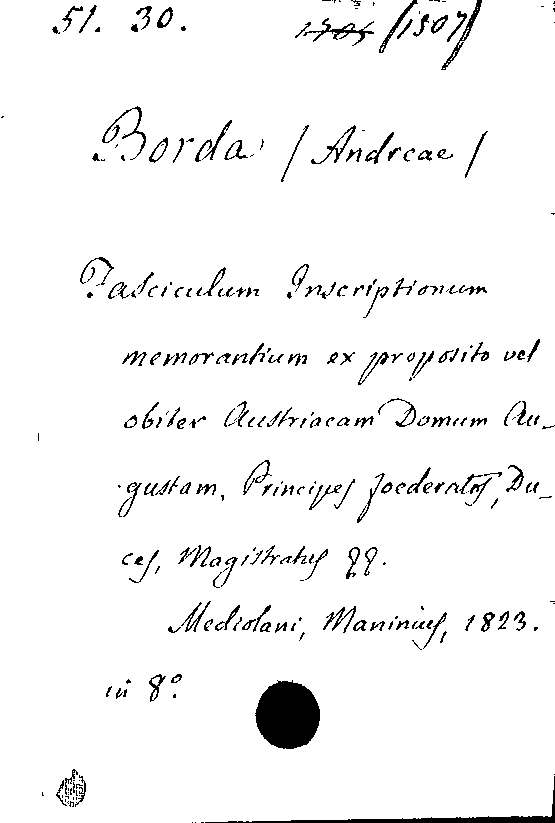 51. 30. 1705 (1507)
Borda / Andreae /
Fasciculum Inscriptionum
memorantium ex proposito vel
obiter Austriacam Domum Au-
gustam, Principes foederatos, Du-
ces, Magistratus
Mediolani, Maninius, 1823.
in 8º.